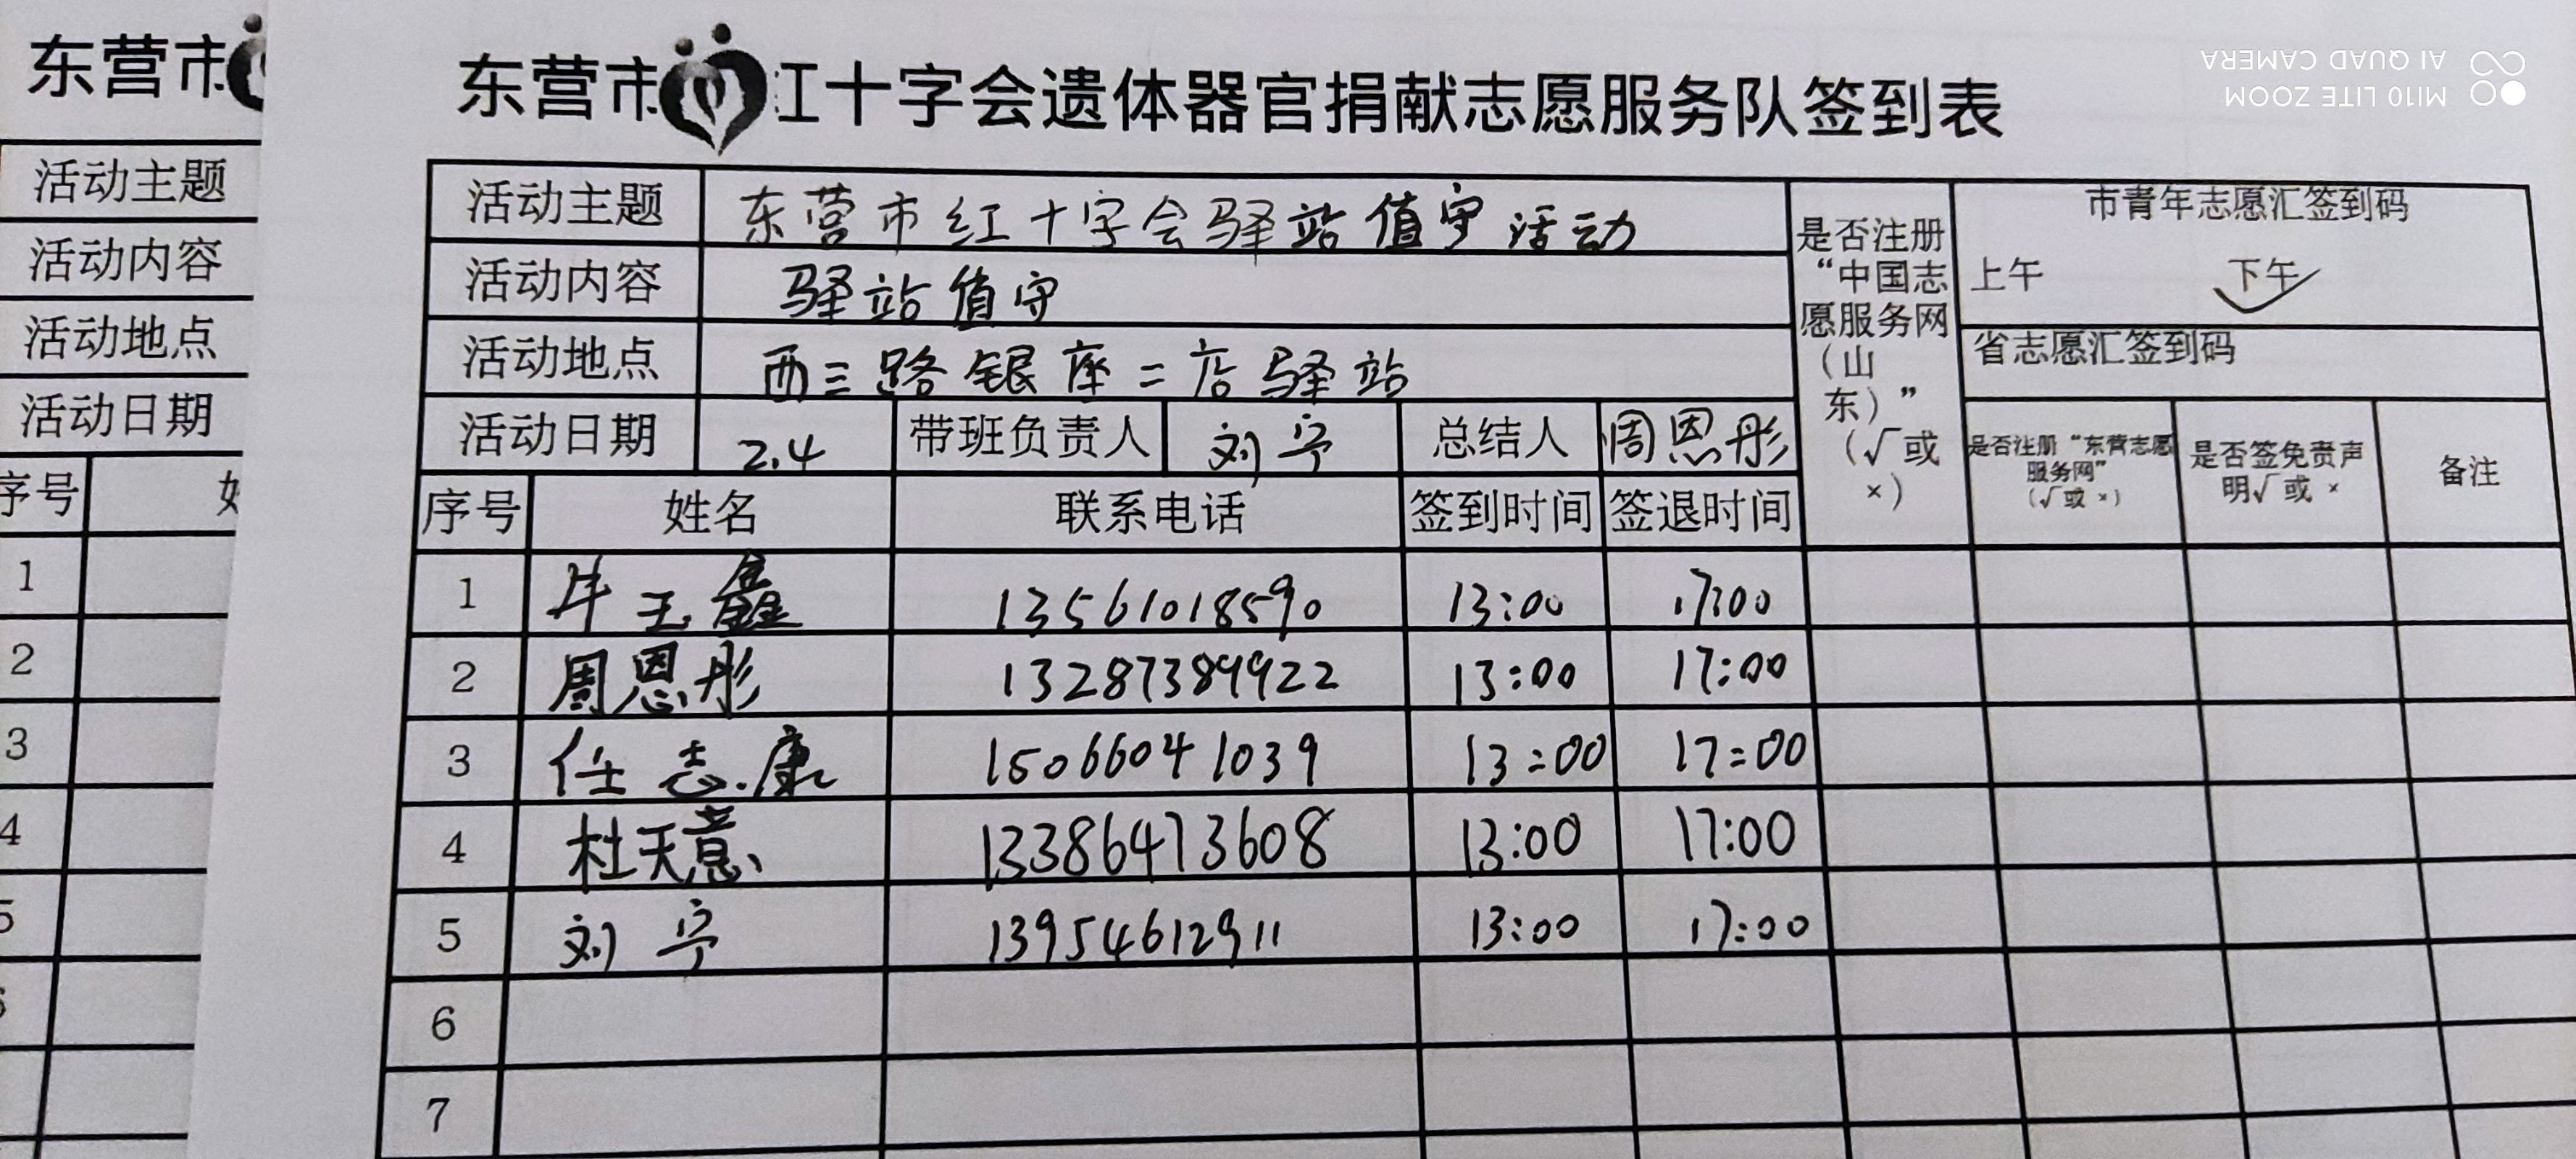 东营市
活动主题
活动内容
活动地点
活动日期
序号
1
2
3
4
5
东营市红十字会遗体器官捐献志愿服务队签到表
活动主题 东营市红十字会驿站值守活动
活动内容 驿站值守
活动地点 西三路银座二店驿站
活动日期 2.4 带班负责人 刘宁 总结人 周恩彤
是否注册
“中国志
愿服务网
（山
东）”
（√或
×）
市青年志愿汇签到码
上午 下午
省志愿汇签到码
是否注册“东营志愿
服务网”
（√或 ×）
是否签免责声
明√或 ×
备注
序号 姓名 联系电话 签到时间 签退时间
1 牛玉鑫 13561018590 13:00 17:00
2 周恩彤 13287389922 13:00 17:00
3 任志康 15066041039 13:00 17:00
4 杜天意 13386473608 13:00 17:00
5 刘宁 13954612911 13:00 17:00
6
7
MI10 LITE ZOOM
AI QUAD CAMERA